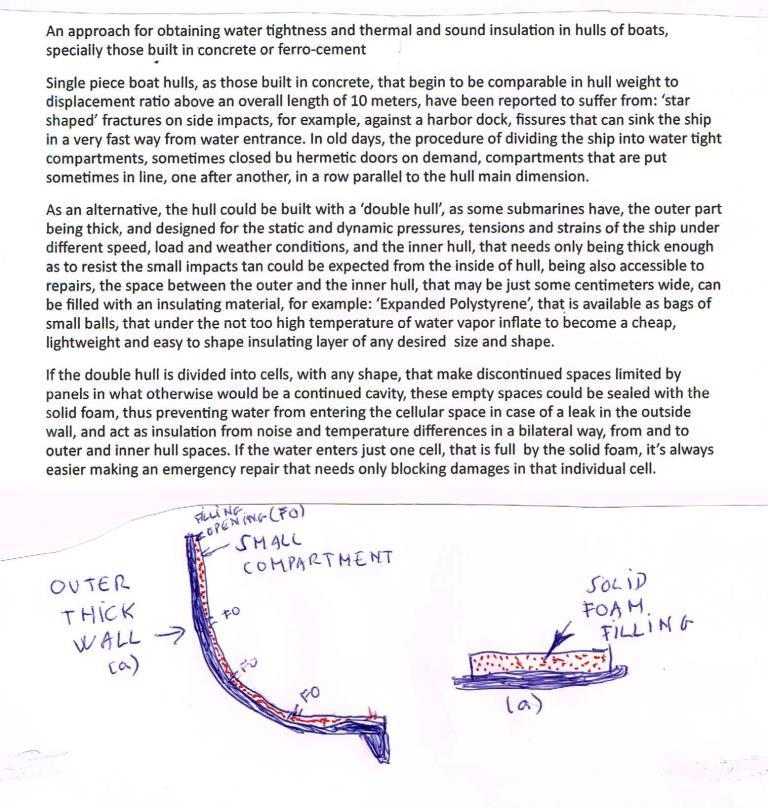 An approach for obtaining water tightness and thermal and sound insulation in hulls of boats,
specially those built in concrete or ferro-cement
Single piece boat hulls, as those built in concrete, that begin to be comparable in hull weight to
displacement ratio above an overall length of 10 meters, have been reported to suffer from: ‘star
shaped’ fractures on side impacts, for example, against a harbor dock, fissures that can sink the ship
in a very fast way from water entrance. In old days, the procedure of dividing the ship into water tight
compartments, sometimes closed bu hermetic doors on demand, compartments that are put
sometimes in line, one after another, in a row parallel to the hull main dimension.
As an alternative, the hull could be built with a ‘double hull’, as some submarines have, the outer part
being thick, and designed for the static and dynamic pressures, tensions and strains of the ship under
different speed, load and weather conditions, and the inner hull, that needs only being thick enough
as to resist the small impacts tan could be expected from the inside of hull, being also accessible to
repairs, the space between the outer and the inner hull, that may be just some centimeters wide, can
be filled with an insulating material, for example: ‘Expanded Polystyrene’, that is available as bags of
small balls, that under the not too high temperature of water vapor inflate to become a cheap,
lightweight and easy to shape insulating layer of any desired size and shape.
If the double hull is divided into cells, with any shape, that make discontinued spaces limited by
panels in what otherwise would be a continued cavity, these empty spaces could be sealed with the
solid foam, thus preventing water from entering the cellular space in case of a leak in the outside
wall, and act as insulation from noise and temperature differences in a bilateral way, from and to
outer and inner hull spaces. If the water enters just one cell, that is full by the solid foam, it’s always
easier making an emergency repair that needs only blocking damages in that individual cell.
FILLING
OPENING (FO)
SMALL
COMPARTMENT
OUTER
THICK
WALL
(a)
FO
FO
FO
SOLID
FOAM
FILLING
(a)